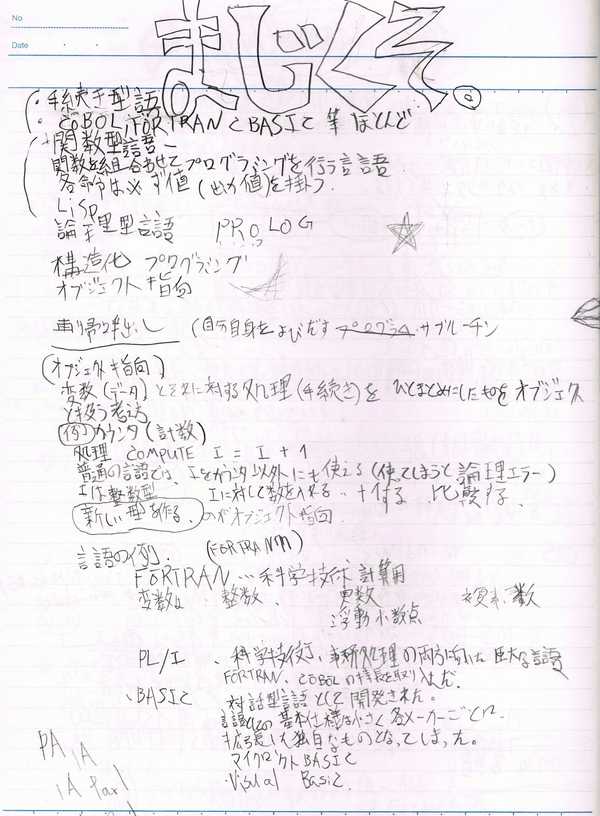 No
Date
まじくそ。
・手続き型言語
・COBOL, FORTRAN C BASIC 等 ほとんど
関数型言語ー
関数を組合わせてプログラミングを行う言語
各命令は必ず値(出力値)を掛つ.
Lisp
論理型言語 PROLOG
構造化 プログラミング
オブジェクト指向
再帰呼出し (自分自身をよびだす プログラム サブルーチン
(オブジェクト指向)
変数(データ)とそれに対する処理(手続き)を ひとまとめにしたものをオブジェク
と扱う考え
例) カウンタ (計数)
処理 COMPUTE I = I + 1
普通の言語では、Iをカウンタ以外にも使える (使ってしまうと論理エラー)
Iは整数型、Iに対して数を入れる .. +1する 比較する、
新しい型を作る、のがオブジェクト指向
言語の例. (FORTRAN)
FORTRAN … 科学技術 計算用
変数は 整数、実数 複素数
浮動小数点
PL/I 、科学技術、事務処理の両方向け 巨大な言語
FORTRAN、COBOLの特長を取り入んだ.
、BASIC 対話型言語として開発された。
言語の基本仕様は小さく各メーカーごとに
拡張した独自なものとなってしまった。
マイクロソフトBASIC
・Visual Basic.
PA IA